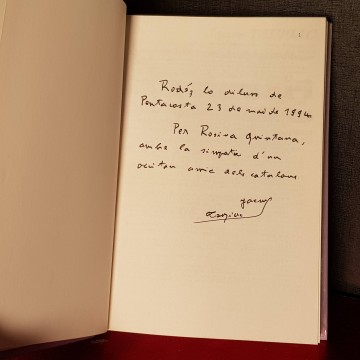 Rodés lo diluns de
Pentacosta 23 de mai de 1994
Per Rosina Quintana,
ambe la simpatia d'un
occitan amic dels catalans